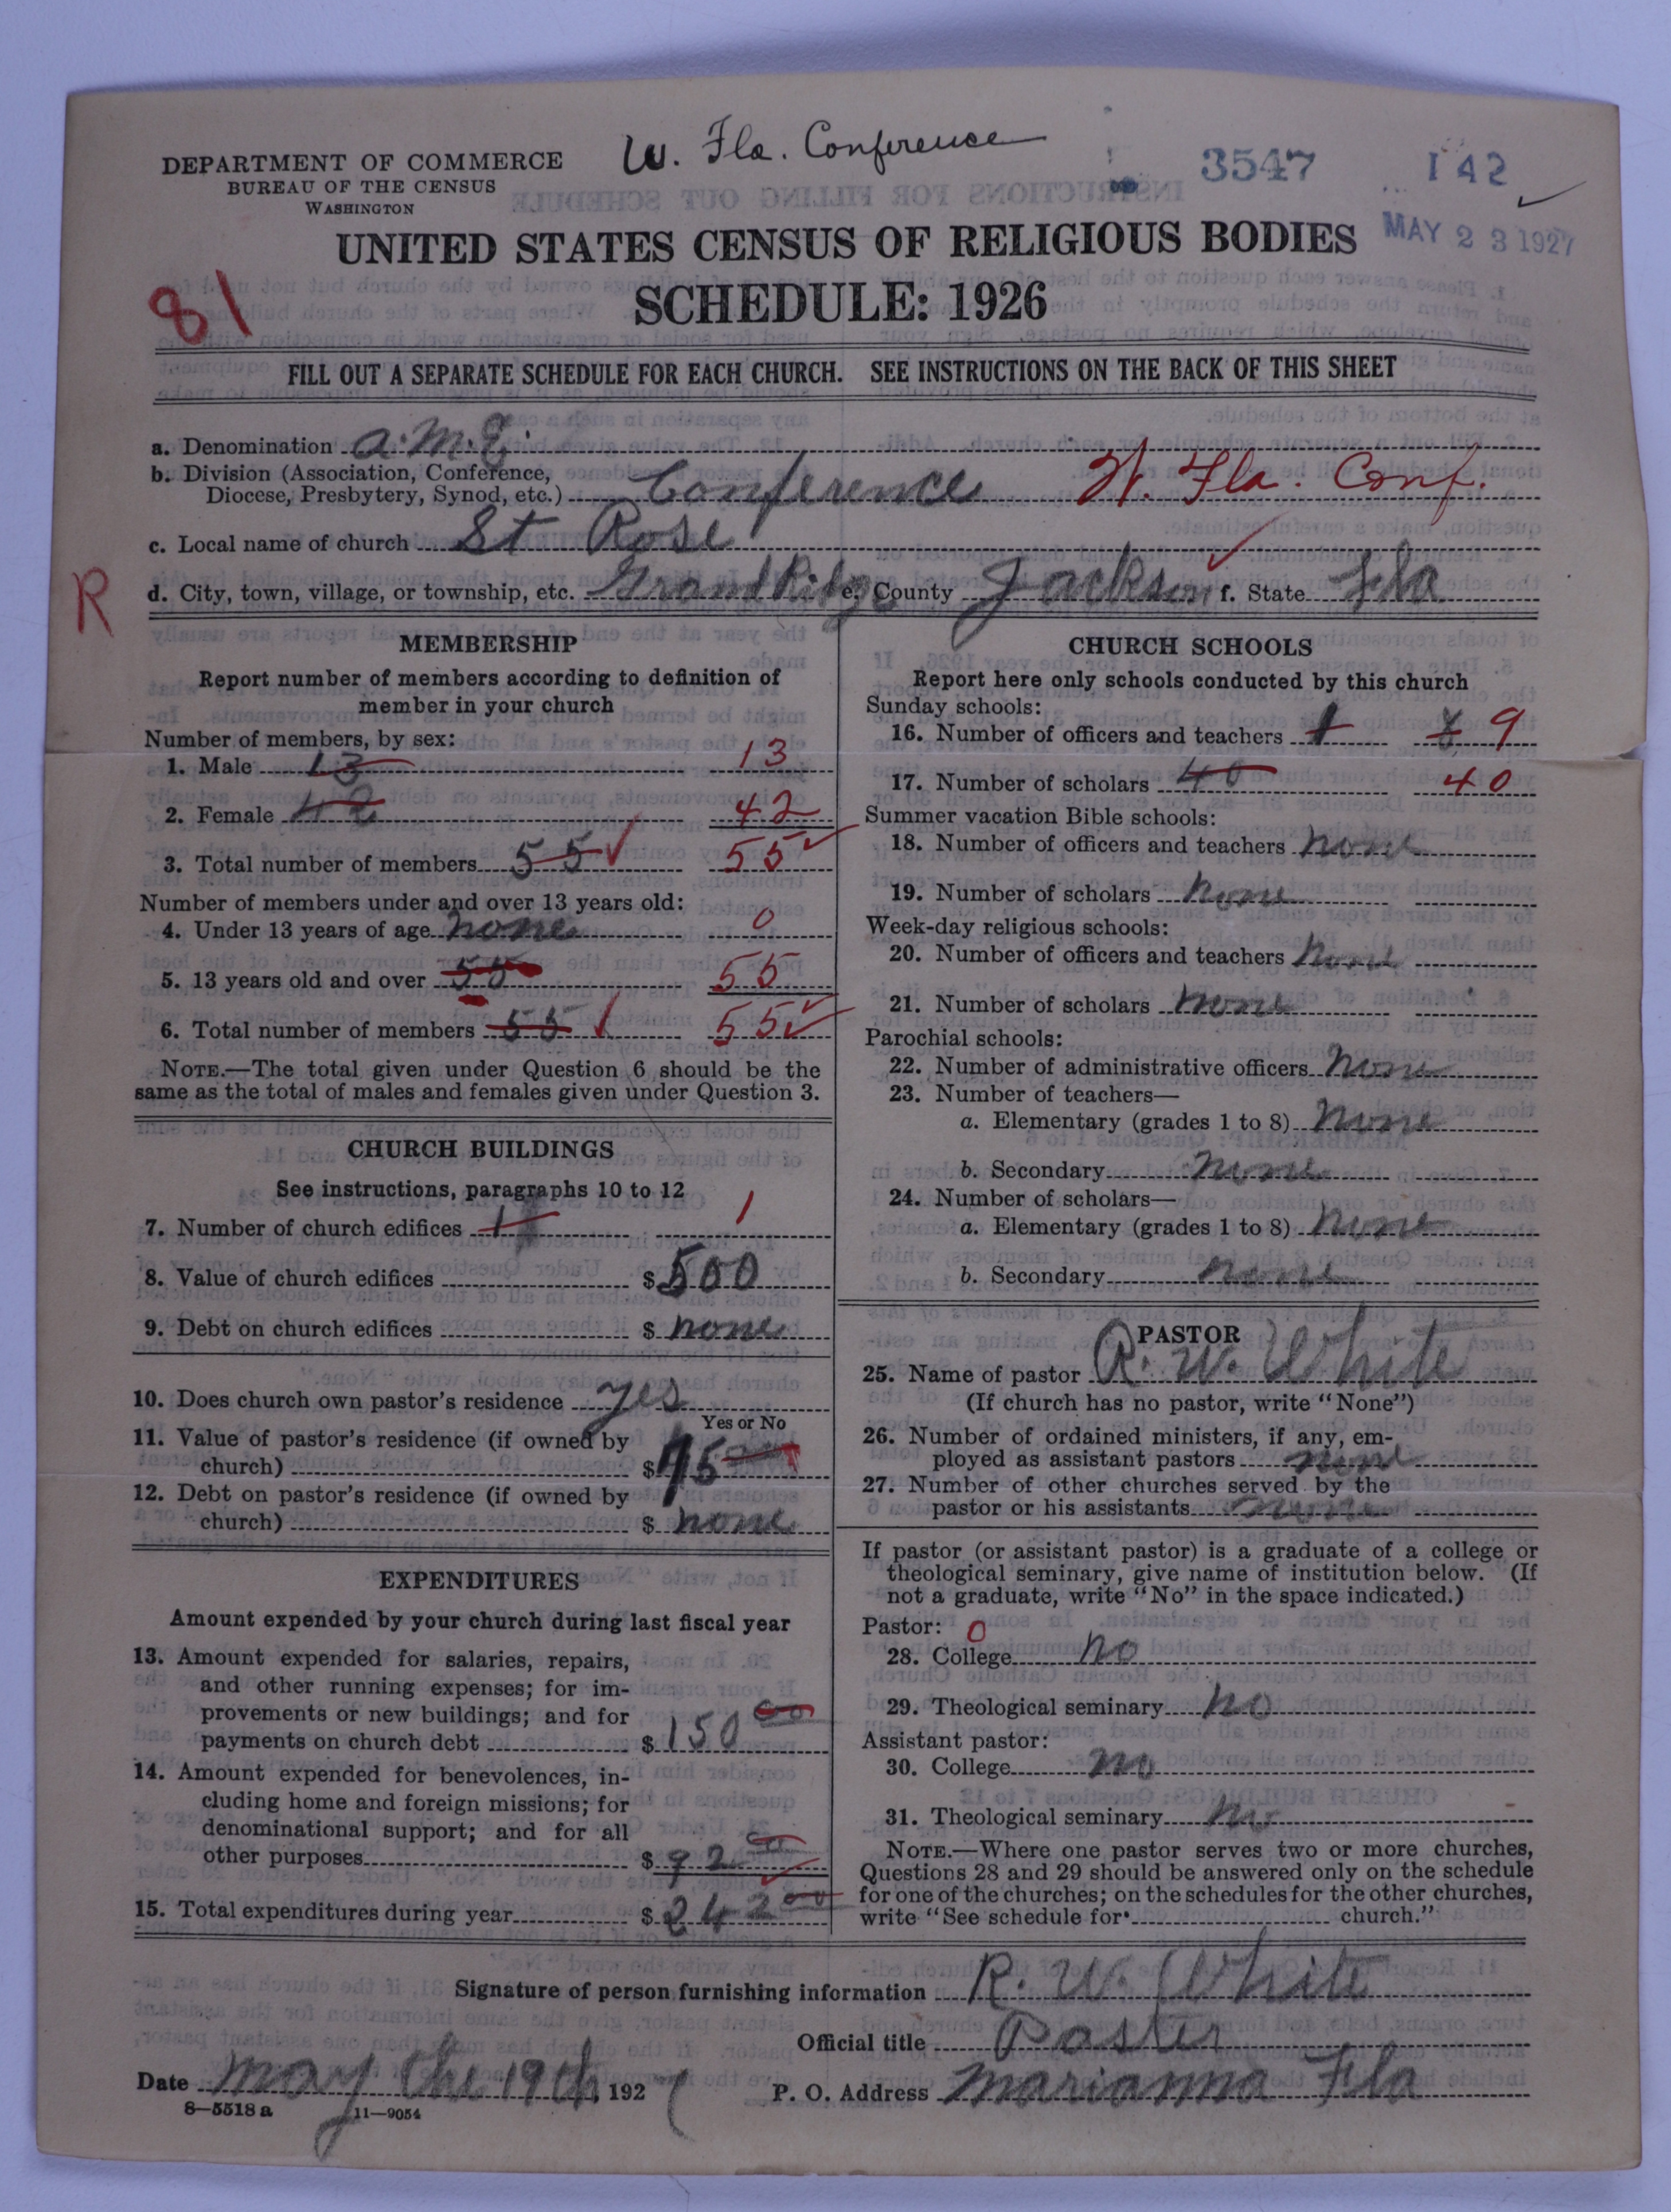 W. Fla. Conference
3547
142
DEPARTMENT OF COMMERCE
BUREAU OF THE CENSUS
WASHINGTON
MAY 23 1927
UNITED STATES CENSUS OF RELIGIOUS BODIES
81
SCHEDULE: 1926
FILL OUT A SEPARATE SCHEDULE FOR EACH CHURCH. SEE INSTRUCTIONS ON THE BACK OF THIS SHEET
a. Denomination A.M.E.
b. Division (Association, Conference,
Diocese, Presbytery, Synod, etc.) Conference W. Fla. Conf.
c. Local name of church St Rose
R
d. City, town, village, or township, etc. Grand Ridge e. County Jackson f. State Fla
MEMBERSHIP
Report number of members according to definition of
member in your church
Number of members, by sex:
1. Male 13 13
2. Female 42 42
3. Total number of members 55 55
Number of members under and over 13 years old:
4. Under 13 years of age none 0
5. 13 years old and over 55 55
6. Total number of members 55 55
NOTE.—The total given under Question 6 should be the
same as the total of males and females given under Question 3.
CHURCH BUILDINGS
See instructions, paragraphs 10 to 12
7. Number of church edifices 1 1
8. Value of church edifices $ 500
9. Debt on church edifices $ none
10. Does church own pastor's residence yes
Yes or No
11. Value of pastor's residence (if owned by
church) $ 75
12. Debt on pastor's residence (if owned by
church) $ none
EXPENDITURES
Amount expended by your church during last fiscal year
13. Amount expended for salaries, repairs,
and other running expenses; for im-
provements or new buildings; and for
payments on church debt $ 150 00
14. Amount expended for benevolences, in-
cluding home and foreign missions; for
denominational support; and for all
other purposes $ 92 00
15. Total expenditures during year $ 242 00
CHURCH SCHOOLS
Report here only schools conducted by this church
Sunday schools:
16. Number of officers and teachers 9
17. Number of scholars 40 40
Summer vacation Bible schools:
18. Number of officers and teachers none
19. Number of scholars none
Week-day religious schools:
20. Number of officers and teachers none
21. Number of scholars none
Parochial schools:
22. Number of administrative officers none
23. Number of teachers—
a. Elementary (grades 1 to 8) none
b. Secondary none
24. Number of scholars—
a. Elementary (grades 1 to 8) none
b. Secondary none
PASTOR
25. Name of pastor R. W. White
(If church has no pastor, write "None")
26. Number of ordained ministers, if any, em-
ployed as assistant pastors none
27. Number of other churches served by the
pastor or his assistants none
If pastor (or assistant pastor) is a graduate of a college or
theological seminary, give name of institution below. (If
not a graduate, write "No" in the space indicated.)
Pastor: 0
28. College no
29. Theological seminary no
Assistant pastor:
30. College no
31. Theological seminary no
NOTE.—Where one pastor serves two or more churches,
Questions 28 and 29 should be answered only on the schedule
for one of the churches; on the schedules for the other churches,
write "See schedule for church."
Signature of person furnishing information R. W. White
Official title Paster
Date may the 19th, 1927 P. O. Address Marianna Fla
8—5518 a 11—9054